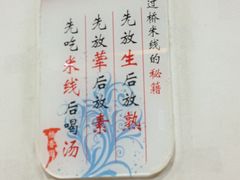 过桥米线的秘籍
先放生后放熟
先放荤后放素
先吃米线后喝汤